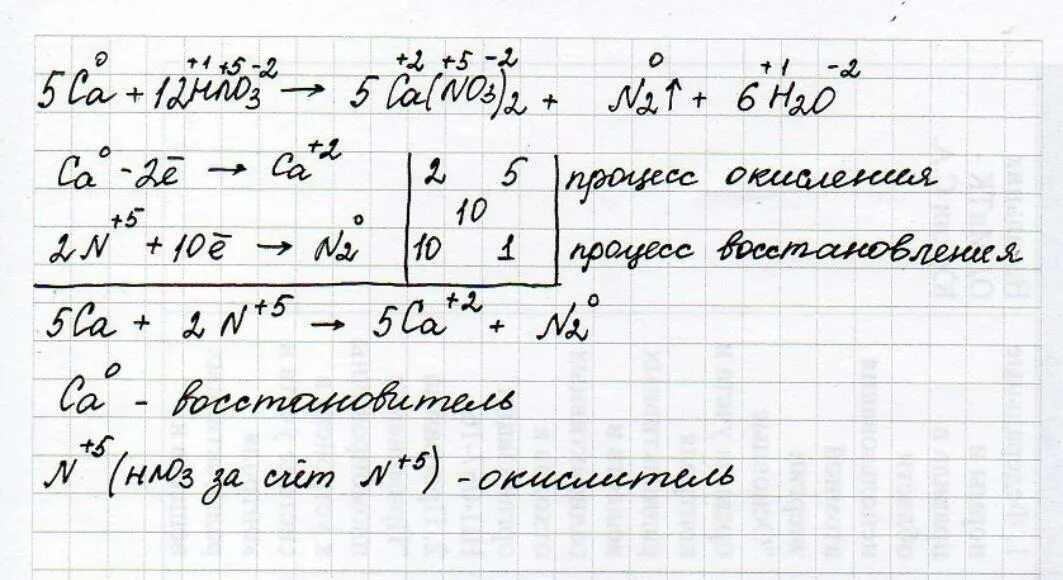 0 +1 +5 -2 +2 +5 -2 0 +1 -2
5Ca + 12HNO3 → 5Ca(NO3)2 + N2↑ + 6H2O
Ca⁰ - 2ē → Ca⁺² | 2 5 | процесс окисления
10
2N⁺⁵ + 10ē → N2⁰ | 10 1 | процесс восстановления
5Ca + 2N⁺⁵ → 5Ca⁺² + N2⁰
Ca⁰ - восстановитель
N⁺⁵ (HNO3 за счёт N⁺⁵) - окислитель